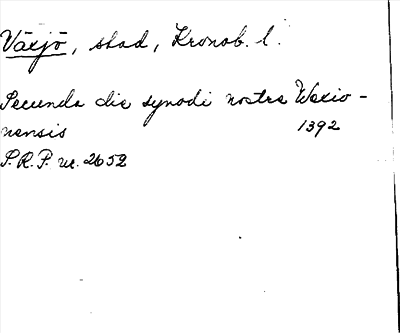 Växjö, stad, Kronob. l.
Secunda die synodi nostre Wexio-
nensis 1392
S.R.P. nr. 2652